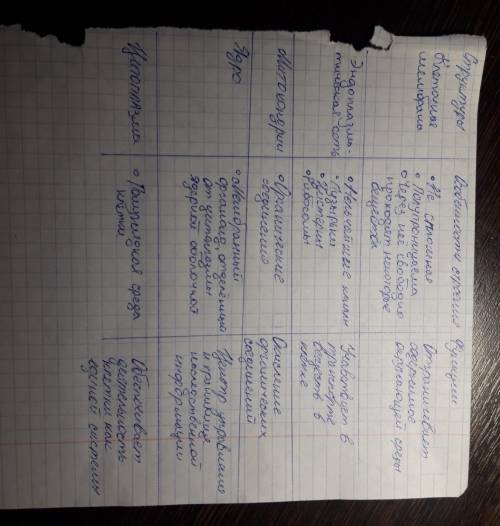 Структуры
Особенности строения
Функции
Клеточная
мембрана
• Не сплошная
• Полупроницаема
• Через неё свободно
проходят некоторые
вещества
Отграничивает
содержимое
окружающей среды
Эндоплазма-
тическая сеть
• Мельчайшие каналы
• Пузырьки
• Цистерны
• Рибосомы
Участвует в
транспорте
веществ в
клетке
Митохондрии
• Органические
соединения
Окисление
органических
соединений
Ядро
• Мембранный
органоид, отделённый
от цитоплазмы
ядерной оболочкой
Центр управления
и хранилище
наследственной
информации
Цитоплазма
• Внутренняя среда
клетки
Обеспечивает
деятельность
клетки как
единой системы